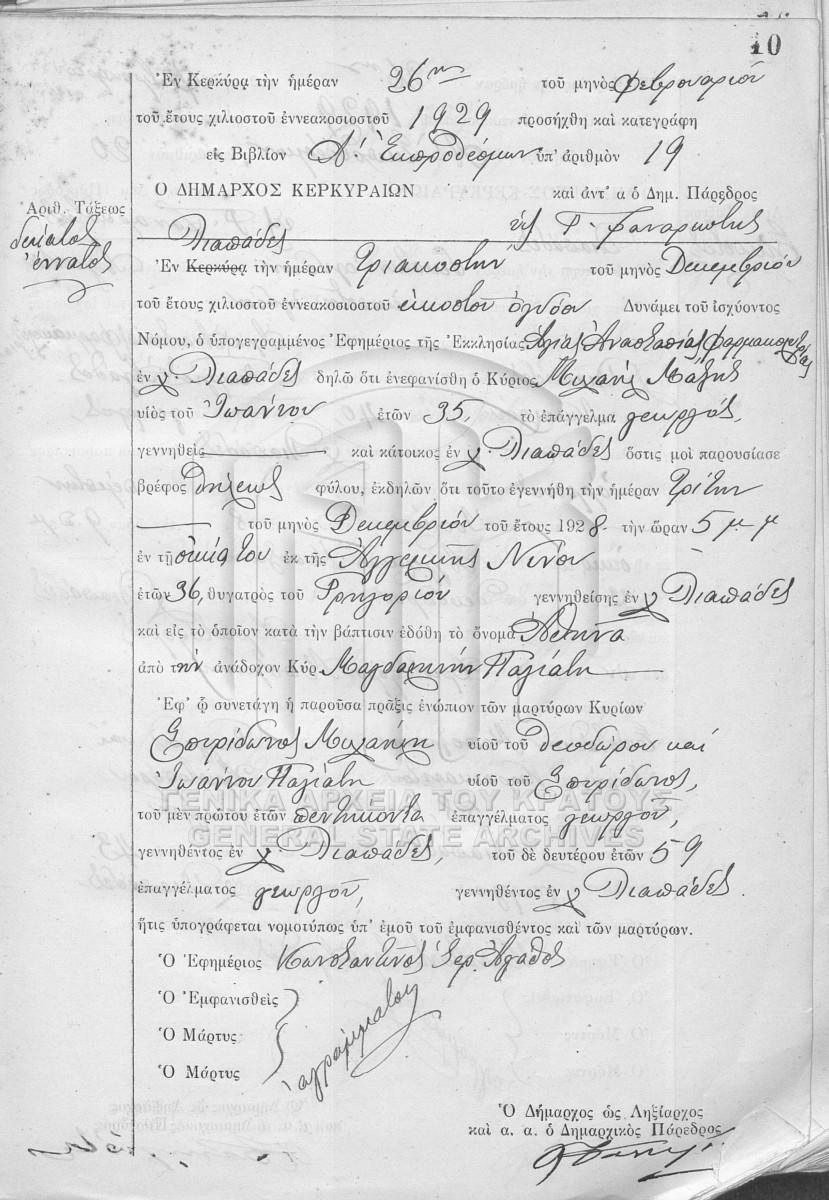 10
Ἐν Κερκύρᾳ τὴν ἡμέραν 26ην τοῦ μηνὸς Φεβρουαρίου
τοῦ ἔτους χιλιοστοῦ ἐννεακοσιοστοῦ 1929 προσήχθη καὶ κατεγράφη
εἰς Βιβλίον Α΄. Ἐκπροθέσμων ὑπ' ἀριθμὸν 19
Ο ΔΗΜΑΡΧΟΣ ΚΕΡΚΥΡΑΙΩΝ καὶ ἀντ' α ὁ Δημ. Πάρεδρος
Ἀριθ. Τάξεως
δέκατος
ἔννατος
Λιαπάδες
Ἐν Κερκύρᾳ τὴν ἡμέραν τριακοστὴν τοῦ μηνὸς Δεκεμβρίου
τοῦ ἔτους χιλιοστοῦ ἐννεακοσιοστοῦ εἰκοστοῦ ὀγδόου Δυνάμει τοῦ ἰσχύοντος
Νόμου, ὁ ὑπογεγραμμένος Ἐφημέριος τῆς Ἐκκλησίας Ἁγίας Ἀναστασίας Φαρμακολυτρίας
ἐν χ. Λιαπάδες δηλῶ ὅτι ἐνεφανίσθη ὁ Κύριος Μιχαὴλ Μάζης
υἱὸς τοῦ Ἰωάννου ἐτῶν 35, τὸ ἐπάγγελμα γεωργός,
γεννηθεὶς καὶ κάτοικος ἐν χ. Λιαπάδες ὅστις μοὶ παρουσίασε
βρέφος θήλεως φύλου, ἐκδηλῶν ὅτι τοῦτο ἐγεννήθη τὴν ἡμέραν τρίτην
τοῦ μηνὸς Δεκεμβρίου τοῦ ἔτους 1928 τὴν ὥραν 5 μ.μ
ἐν τῇ οἰκίᾳ του ἐκ τῆς Ἀγγελικῆς Νίνου
ἐτῶν 36, θυγατρὸς τοῦ Γρηγορίου γεννηθείσης ἐν χ Λιαπάδες
καὶ εἰς τὸ ὁποῖον κατὰ τὴν βάπτισιν ἐδόθη τὸ ὄνομα Ἀθηνᾶ
ἀπὸ τὴν ἀνάδοχον Κύρ. Μαγδαληνὴν Παγιάτη
Ἐφ' ᾧ συνετάγη ἡ παροῦσα πρᾶξις ἐνώπιον τῶν μαρτύρων Κυρίων
Σπυρίδωνος Μιχαήλη υἱοῦ τοῦ Θεοδώρου καὶ
Ἰωάννου Παγιάτη υἱοῦ τοῦ Σπυρίδωνος,
ΓΕΝΙΚΑ ΑΡΧΕΙΑ ΤΟΥ ΚΡΑΤΟΥΣ
τοῦ μὲν πρώτου ἐτῶν πεντήκοντα ἐπαγγέλματος γεωργοῦ,
GENERAL STATE ARCHIVES
γεννηθέντος ἐν χ Λιαπάδες, τοῦ δὲ δευτέρου ἐτῶν 59
ἐπαγγέλματος γεωργοῦ, γεννηθέντος ἐν χ Λιαπάδες.
ἥτις ὑπογράφεται νομοτύπως ὑπ' ἐμοῦ τοῦ ἐμφανισθέντος καὶ τῶν μαρτύρων.
Ὁ Ἐφημέριος Κωνσταντῖνος Ἱερ. Ἀγαθός
Ὁ Ἐμφανισθεὶς
Ὁ Μάρτυς
Ὁ Μάρτυς
ἀγράμματοι
Ὁ Δήμαρχος ὡς Ληξίαρχος
καὶ α. α. ὁ Δημαρχικὸς Πάρεδρος